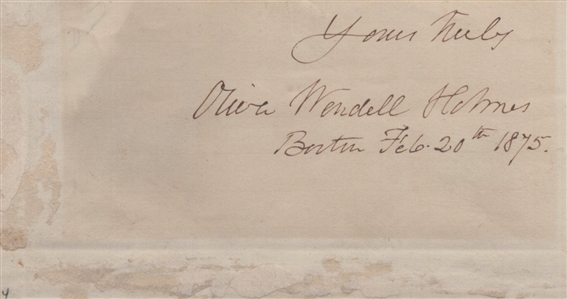 Yours truly
Oliver Wendell Holmes
Boston Feb. 20th 1875.
4